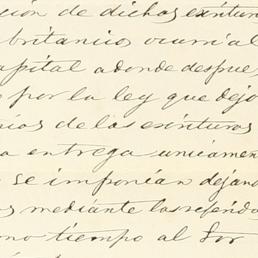 ción de dichas escritur
britanico ocurrió al
apital a donde despues
por la ley que dejo
ios de las escrituras
a entrega unicamen
se imponian dejand
s mediante las referida
mo tiempo al Sor